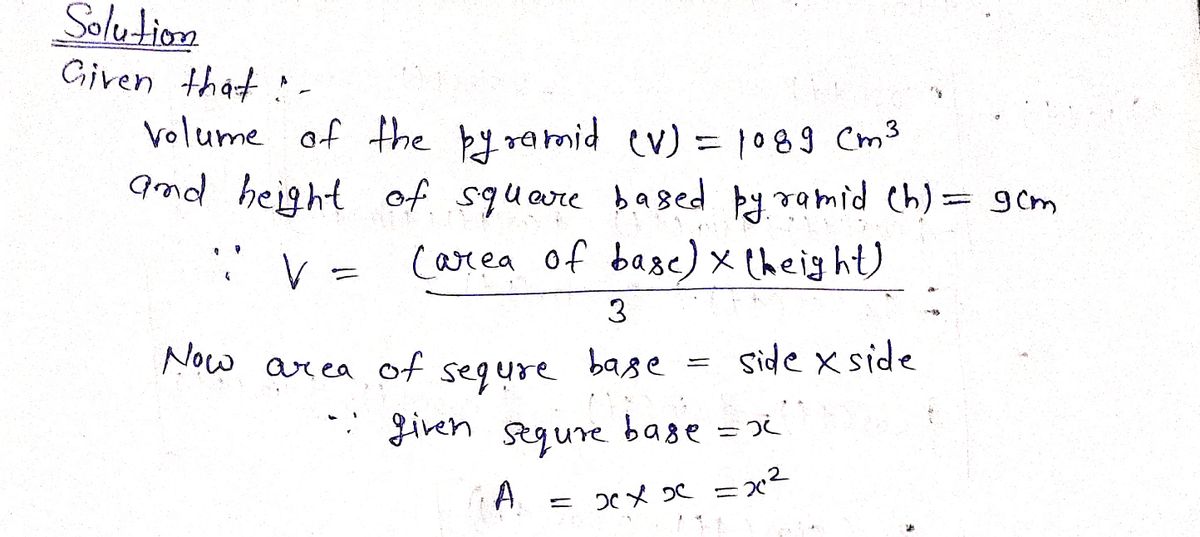 Solution
Given that :-
Volume of the pyramid (V) = 1089 cm³
and height of square based pyramid (h) = 9cm
∵ V = (area of base) × (height)
3
Now area of sequre base = side × side
∵ given sequre base = x
A = x × x = x²